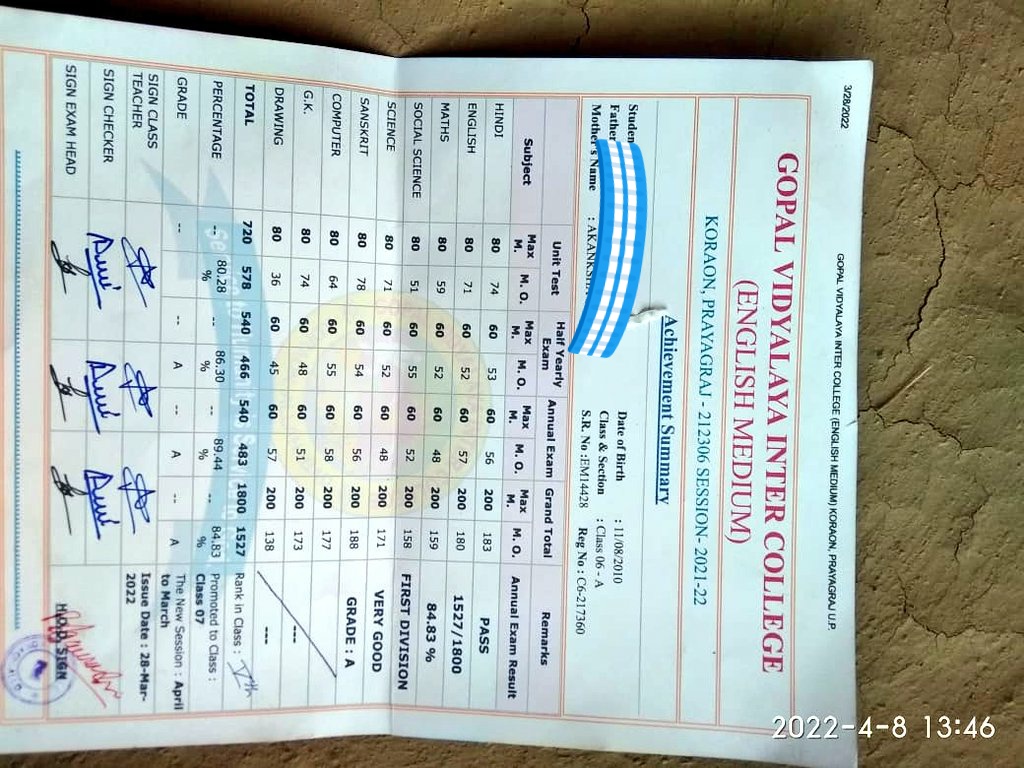 3/28/2022
GOPAL VIDYALAYA INTER COLLEGE (ENGLISH MEDIUM) KORAON, PRAYAGRAJ U.P.
GOPAL VIDYALAYA INTER COLLEGE
(ENGLISH MEDIUM)
KORAON, PRAYAGRAJ - 212306 SESSION- 2021-22
Achievement Summary
Date of Birth : 11/08/2010
Father
Class & Section : Class 06 - A
Mother's Name : S.R. No :EM14428 Reg No : C6-217360
Subject Unit Test Half Yearly Exam Annual Exam Grand Total Remarks
Max M. M. O. Max M. M. O. Max M. M. O. Max M. M. O. Annual Exam Result
HINDI 80 74 60 53 60 56 200 183 PASS
ENGLISH 80 71 60 52 60 57 200 180 1527/1800
MATHS 80 59 60 52 60 48 200 159 84.83 %
SOCIAL SCIENCE 80 51 60 55 60 52 200 158 FIRST DIVISION
SCIENCE 80 71 60 52 60 48 200 171 VERY GOOD
SANSKRIT 80 78 60 54 60 56 200 188 GRADE : A
COMPUTER 80 64 60 55 60 58 200 177
G.K. 80 74 60 48 60 51 200 173 ---
DRAWING 80 36 60 45 60 57 200 138 ---
TOTAL 720 578 540 466 540 483 1800 1527 Rank in Class :
PERCENTAGE -- 80.28 % -- 86.30 % -- 89.44 % -- 84.83 % Promoted to Class : Class 07
GRADE -- -- A -- A -- A The New Session : April to March
SIGN CLASS TEACHER Issue Date : 28-Mar-2022
SIGN CHECKER
SIGN EXAM HEAD H.O.D. SIGN
2022-4-8 13:46